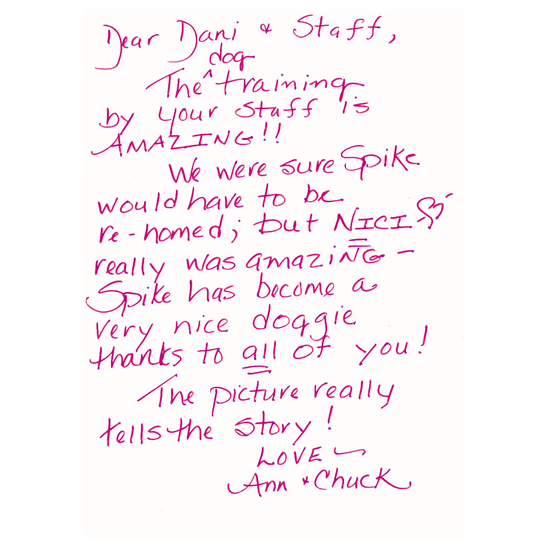 Dear Dani & Staff,
The ^dog training
by your staff is
AMAZING!!
We were sure Spike
would have to be
re-homed; but NICI ♡
really was amaziNG –
Spike has become a
very nice doggie
thanks to all of you!
The picture really
tells the story!
LOVE ~
Ann & Chuck